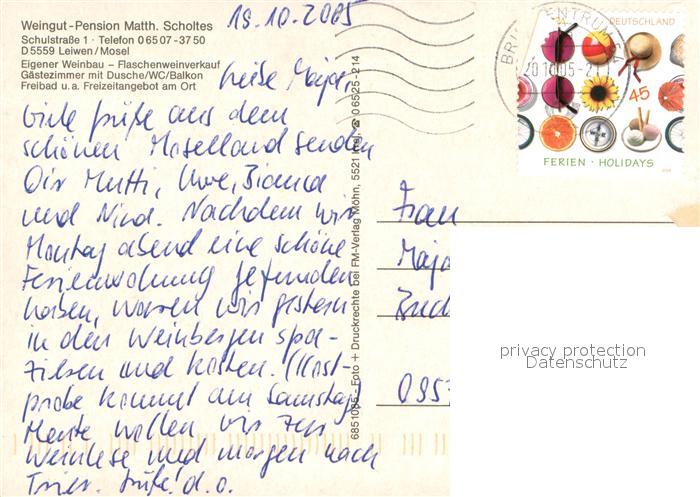 Weingut-Pension Matth. Scholtes
Schulstraße 1 · Telefon 06507-3750
D 5559 Leiwen/Mosel
Eigener Weinbau – Flaschenweinverkauf
Gästezimmer mit Dusche/WC/Balkon
Freibad u.a. Freizeitangebot am Ort
19.10.2005
Viele Grüße aus dem
schönen Moselland senden
Dir Mutti, Uwe, Bianca
und Nina. Nachdem wir
Montag abend eine schöne
Ferienwohnung gefunden
haben, waren wir gestern
in den Weinbergen spa-
zieren und kosten. (Kost-
probe kommt am Samstag)
Heute wollen wir zur
Weinlese und morgen nach
Trier. Grüße! d.o.
6851085 - Foto + Druckrechte bei FM-Verlag Möhn, 5521 ☎ 06525-214
DEUTSCHLAND
45
FERIEN · HOLIDAYS
Frau
privacy protection
Datenschutz